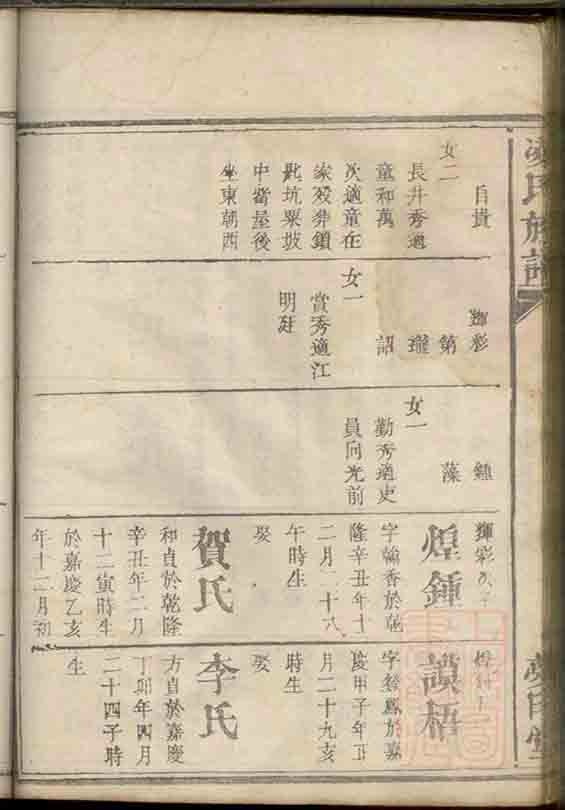 氏族譜
自貴
女二
長井秀適
童和萬
次適童在
家歿葬鎖
匙坑粟坡
中嘗屋後
坐東朝西
輝彩
第
瓏
詔
女一
賞秀適江
明廷
鍾
藻
女一
勤秀適史
員向光前
輝彩次子
煌鍾
字翰香於乾
隆辛丑年十
二月二十八
午時生
娶
賀氏
和貞於乾隆
辛丑年二月
十二寅時生
於嘉慶乙亥
年十二月初
謨梧
於嘉
慶甲子年正
月二十九亥
時生
娶
李氏
方貞於嘉慶
丁卯年四月
二十四子時
生